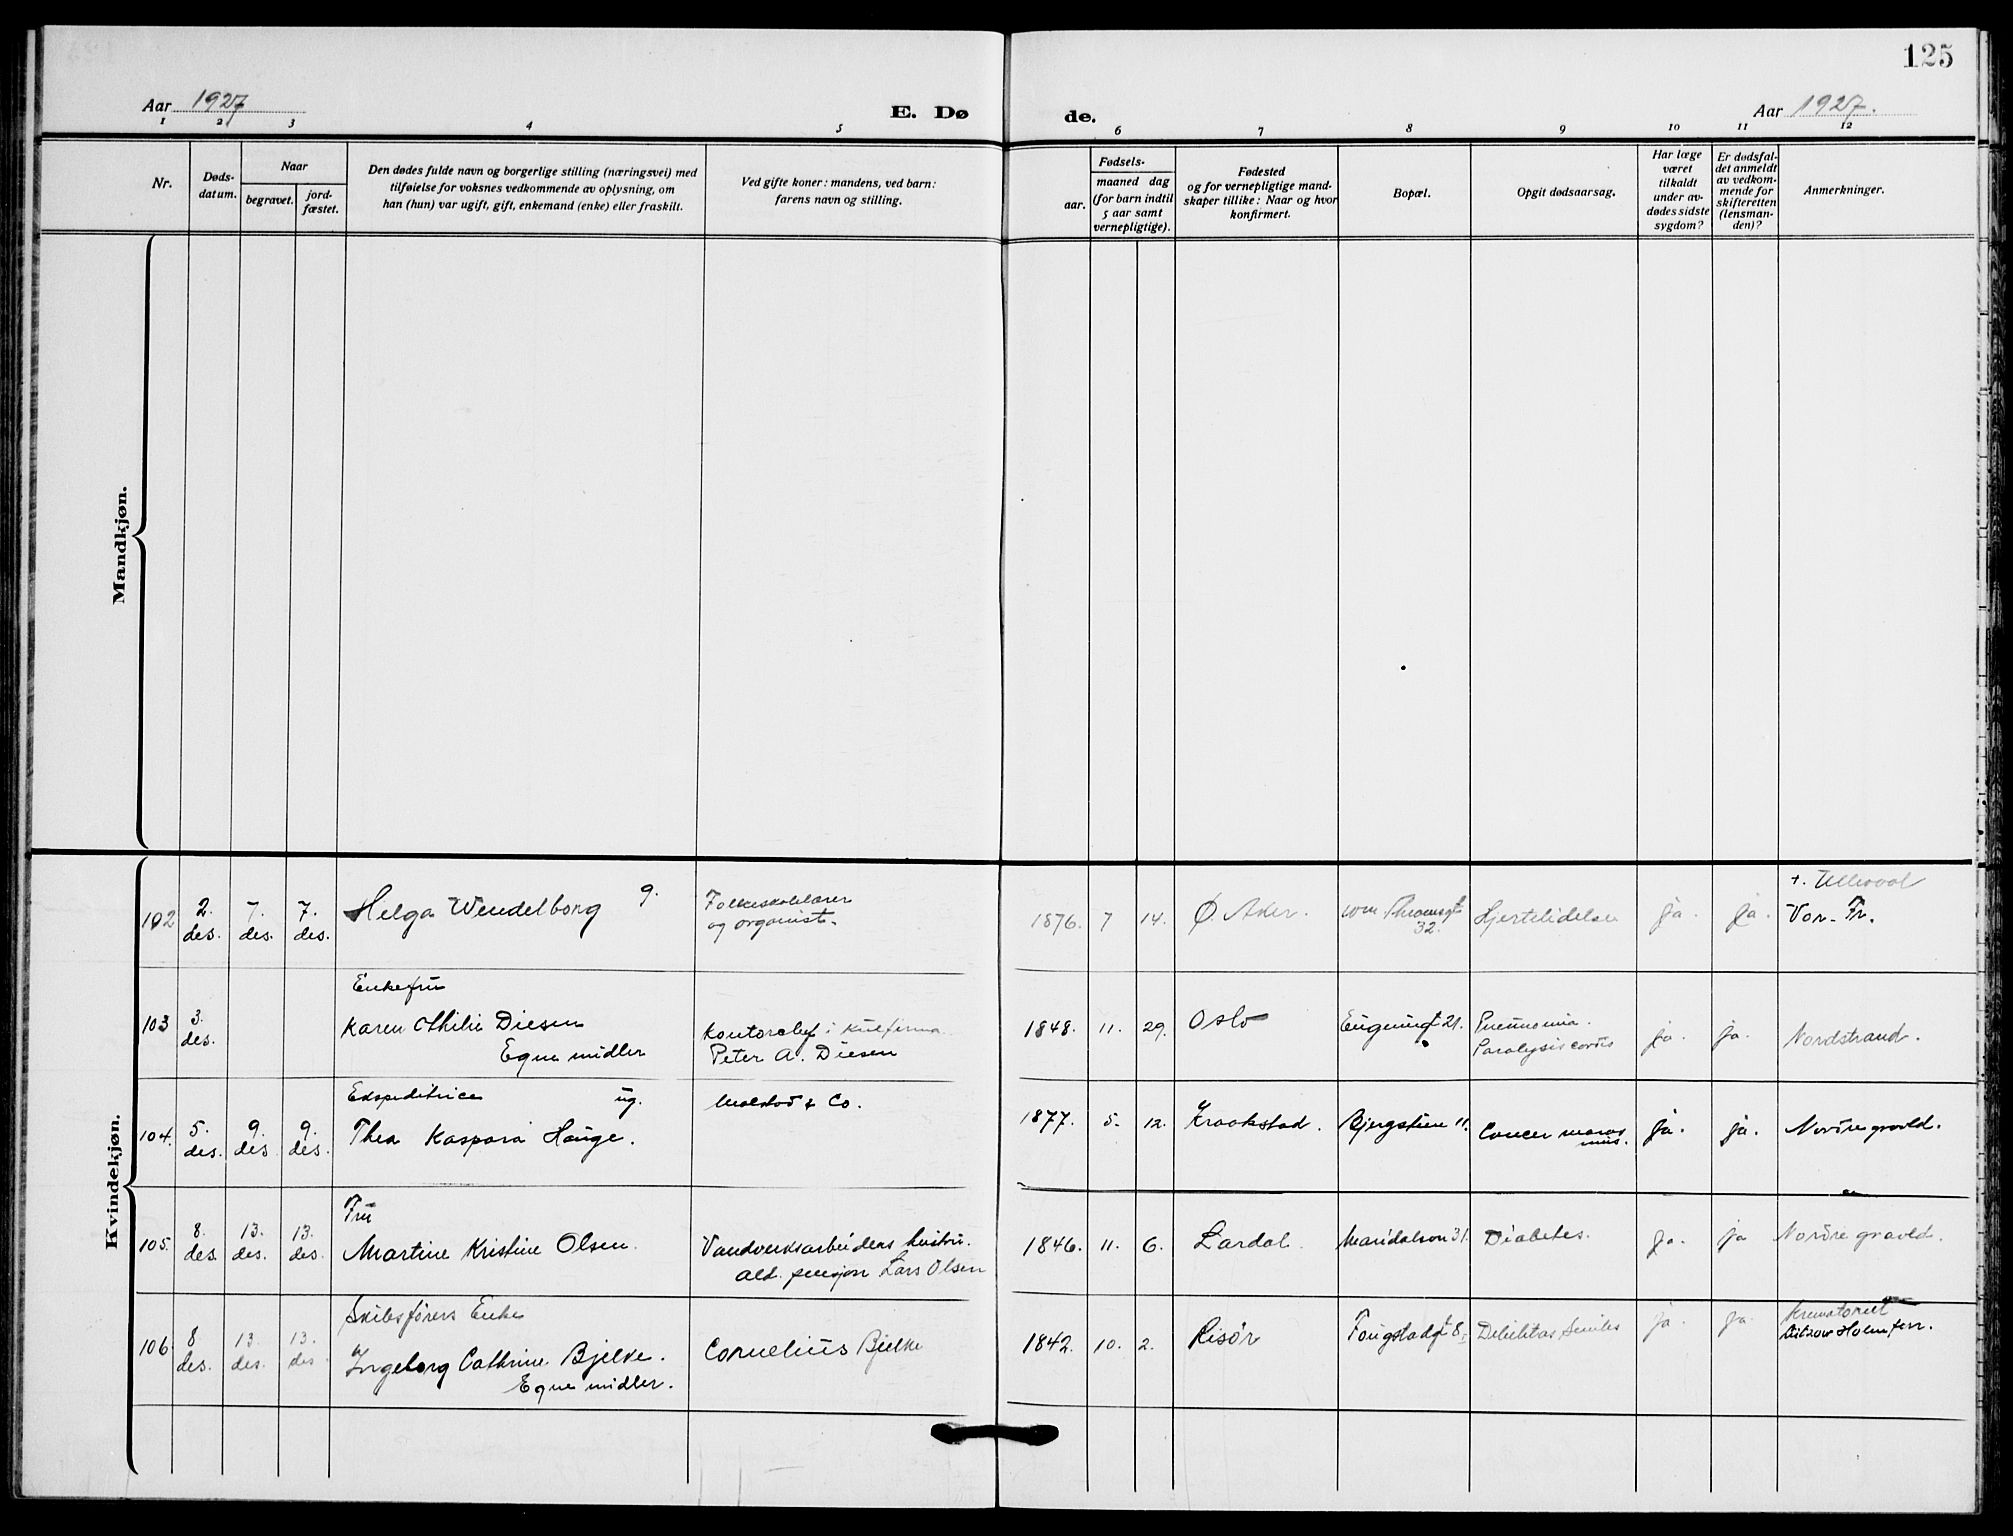 125
Aar 1927
E. Døde.
Aar 1927.
1 2 3 4 5 6 7 8 9 10 11 12
Nr.
Døds-
datum.
Naar
begravet.
jord-
fæstet.
Den dødes fulde navn og borgerlige stilling (næringsvei) med
tilføielse for voksnes vedkommende av oplysning, om
han (hun) var ugift, gift, enkemand (enke) eller fraskilt.
Ved gifte koner: mandens, ved barn:
farens navn og stilling.
Fødsels-
aar.
maaned dag
(for barn indtil
5 aar samt
vernepligtige).
Fødested
og for vernepligtige mand-
skaper tillike: Naar og hvor
konfirmert.
Bopæl.
Opgit dødsaarsag.
Har læge
været
tilkaldt
under av-
dødes sidste
sygdom?
Er dødsfal-
det anmeldt
av vedkom-
mende for
skifteretten
(lensman-
den)?
Anmerkninger.
Mandkjøn.
Kvindekjøn.
102
2.
des.
7.
des.
7.
des.
Helga Wendelborg g.
Folkeskolelærer
og organist.
1876. 7 14.
Ø. Aker.
32.
Hjertelidelse
ja. ja.
+. Ullevaal
Vor Fr.
103
3.
des.
Enkefru
Karen Othilie Diesen
Egne midler
Kontorchef i kulfirma
Peter A. Diesen
1848. 11. 29.
Oslo
Eugeniesgt 21.
Pneumonia.
Paralysis cordis
ja. ja.
Nordstrand.
104.
5.
des.
9.
des
9.
des.
Ekspeditrice ug.
Thea Kaspara Hauge.
Molstad & Co.
1877. 5. 12.
Kraakstad.
Bjergstien 11.
Cancer
ja. ja.
Nordre gravld.
105.
8.
des
13.
des.
13.
des.
Fru
Martine Kristine Olsen.
Vandverksarbeiders hustru.
ald. pensjon Lars Olsen
1846. 11. 6.
Lardal.
Maridalsvn 31.
Diabetes.
ja. ja
Nordre gravld.
106
8
des.
13.
des.
13.
des.
Skibsførers Enke
Ingeborg Cathrine Bjelke.
Egne midler.
Cornelius Bjelke
1842. 10. 2.
Risør
Fougstadgt 8.
Debilitas Senilis
ja. ja.
Krematoriet